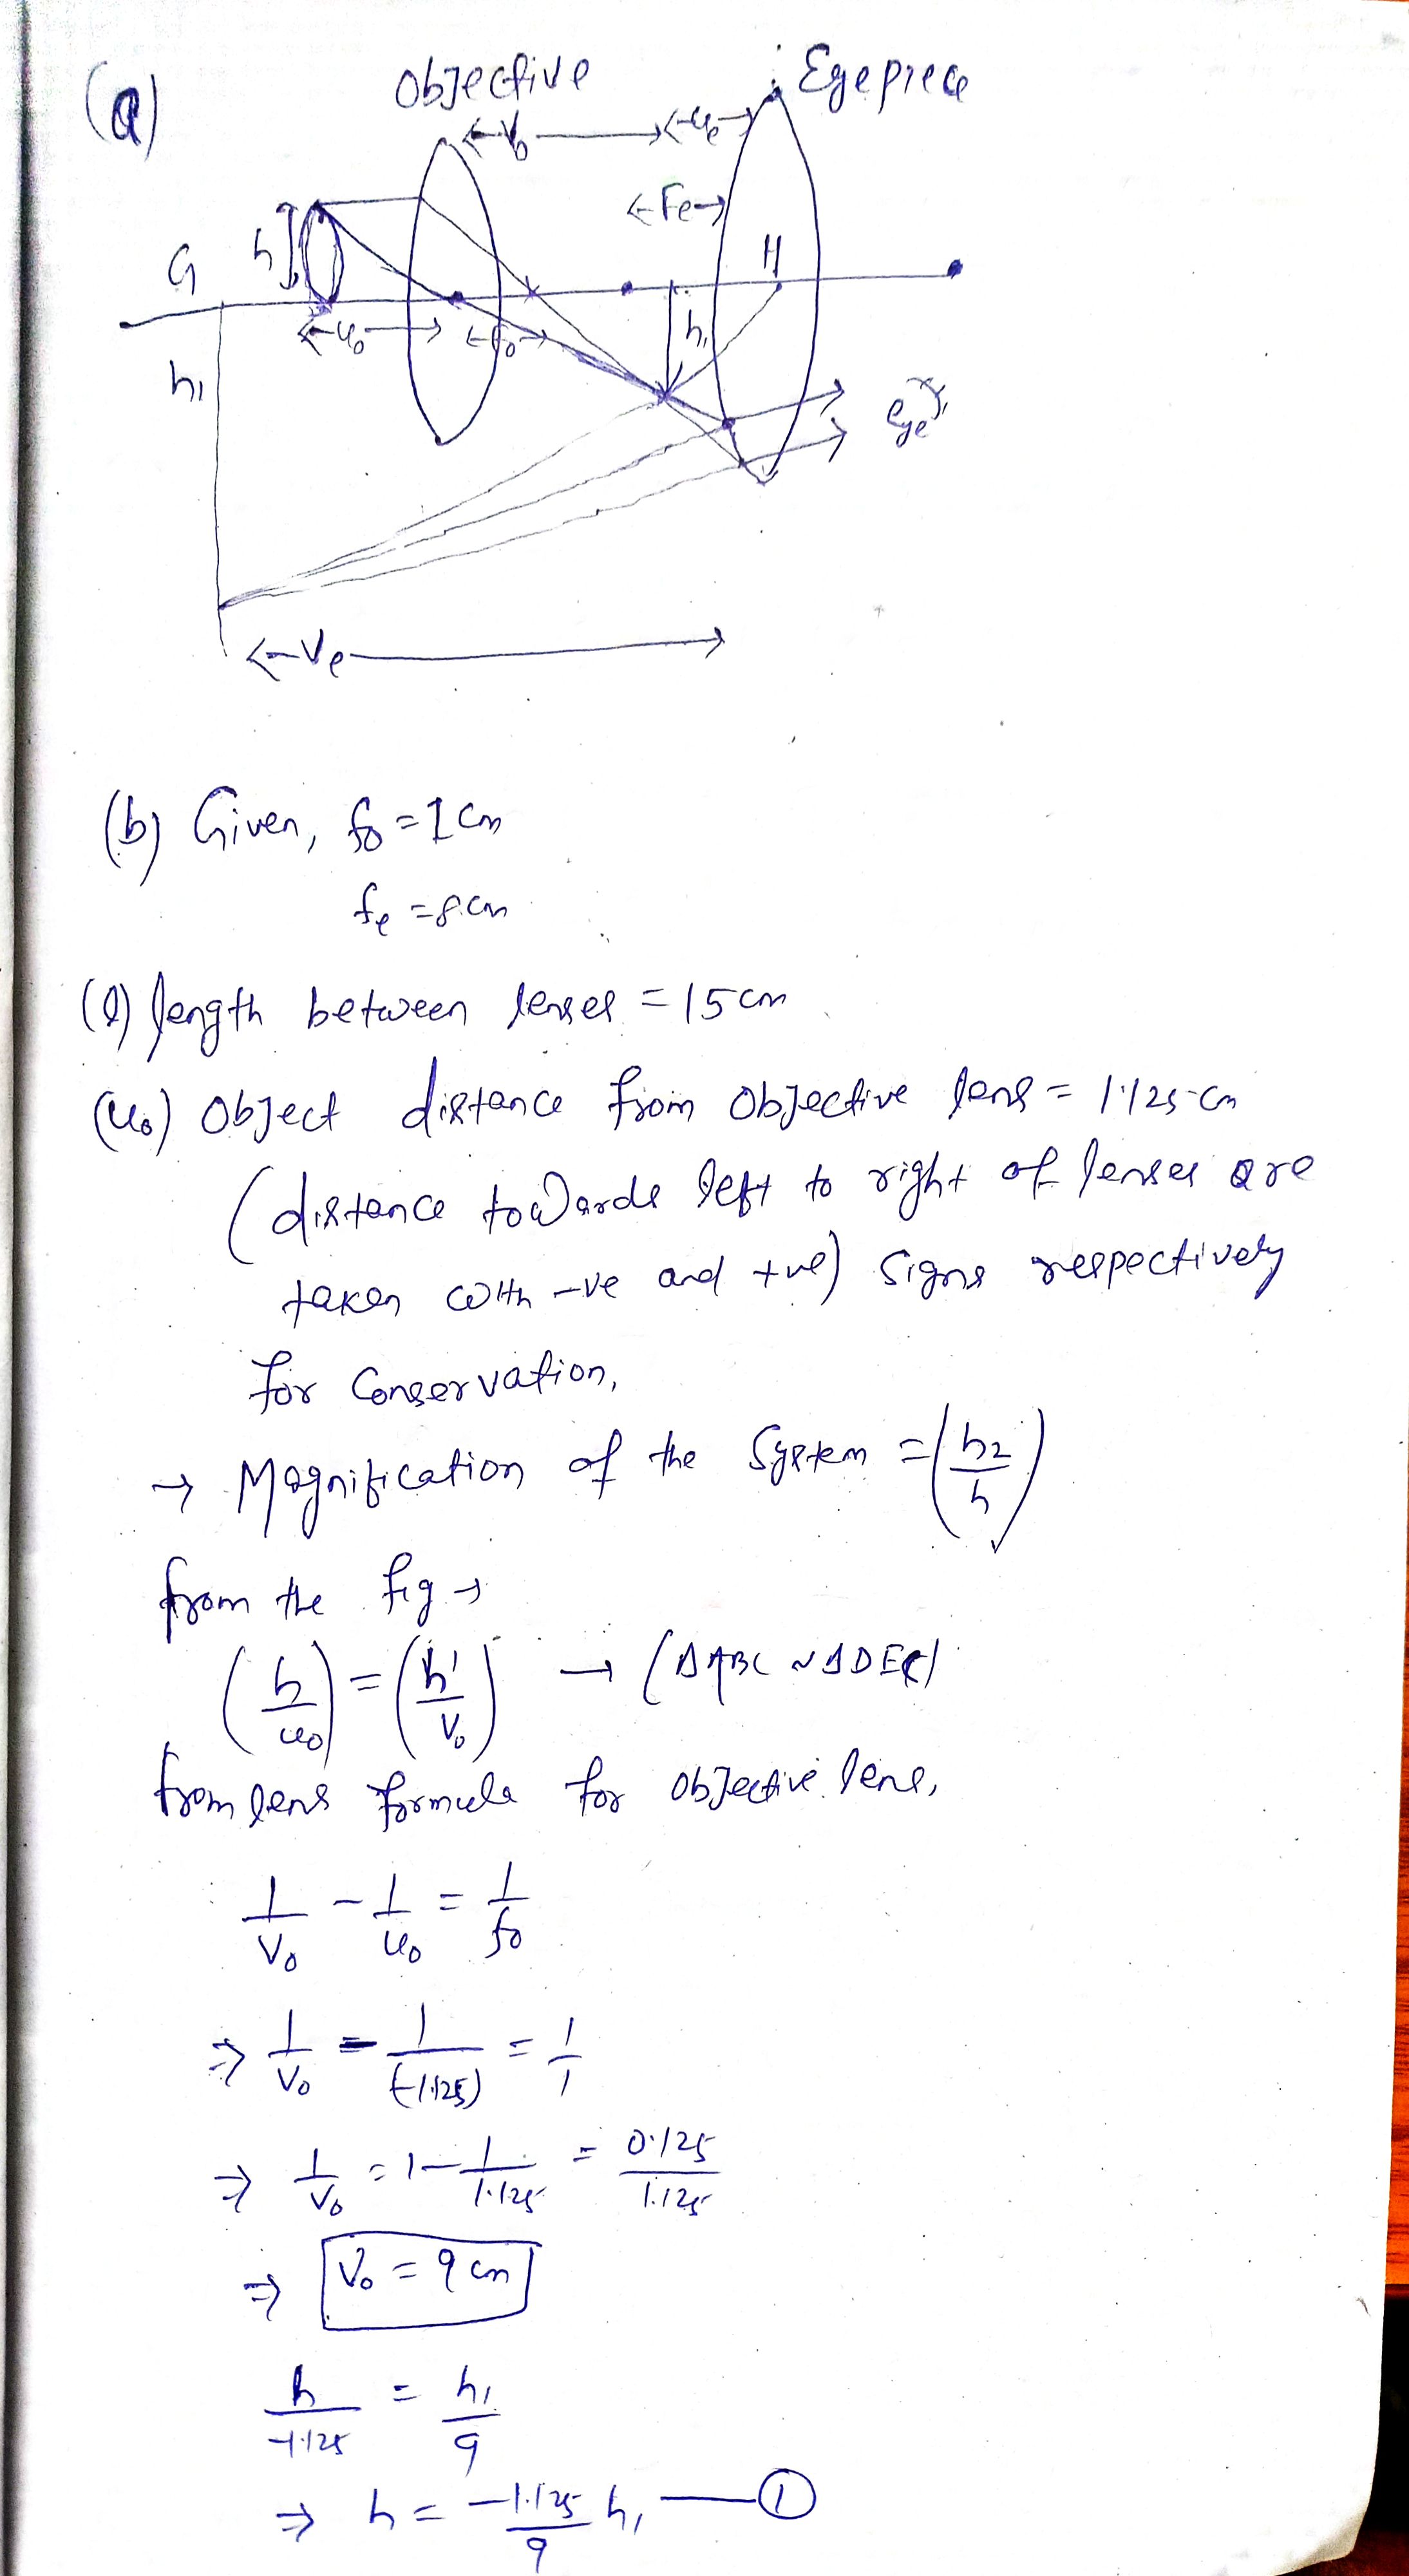 (a)
Objective
Eyepiece
V₀
uₑ
Fe
h
G
H
u₀
f₀
h₁
h₁
eye
Ve
(b) Given, f₀ = 1 cm
fe = 8 cm
(l) length between lenses = 15 cm
(u₀) Object distance from Objective lens = 1.125 cm
(distance towards left to right of lenses are
taken with -ve and +ve) signs respectively
for Conservation,
→ Magnification of the System = (h₂/h)
from the fig →
(h/u₀) = (h'/V₀) → (ΔABC ~ ΔDEC)
from lens formula for objective lens,
1/V₀ - 1/u₀ = 1/f₀
⇒ 1/V₀ - 1/(-1.125) = 1/1
⇒ 1/V₀ = 1 - 1/1.125 = 0.125/1.125
⇒ V₀ = 9 cm
h/-1.125 = h₁/9
⇒ h = -1.125/9 h₁ — ①